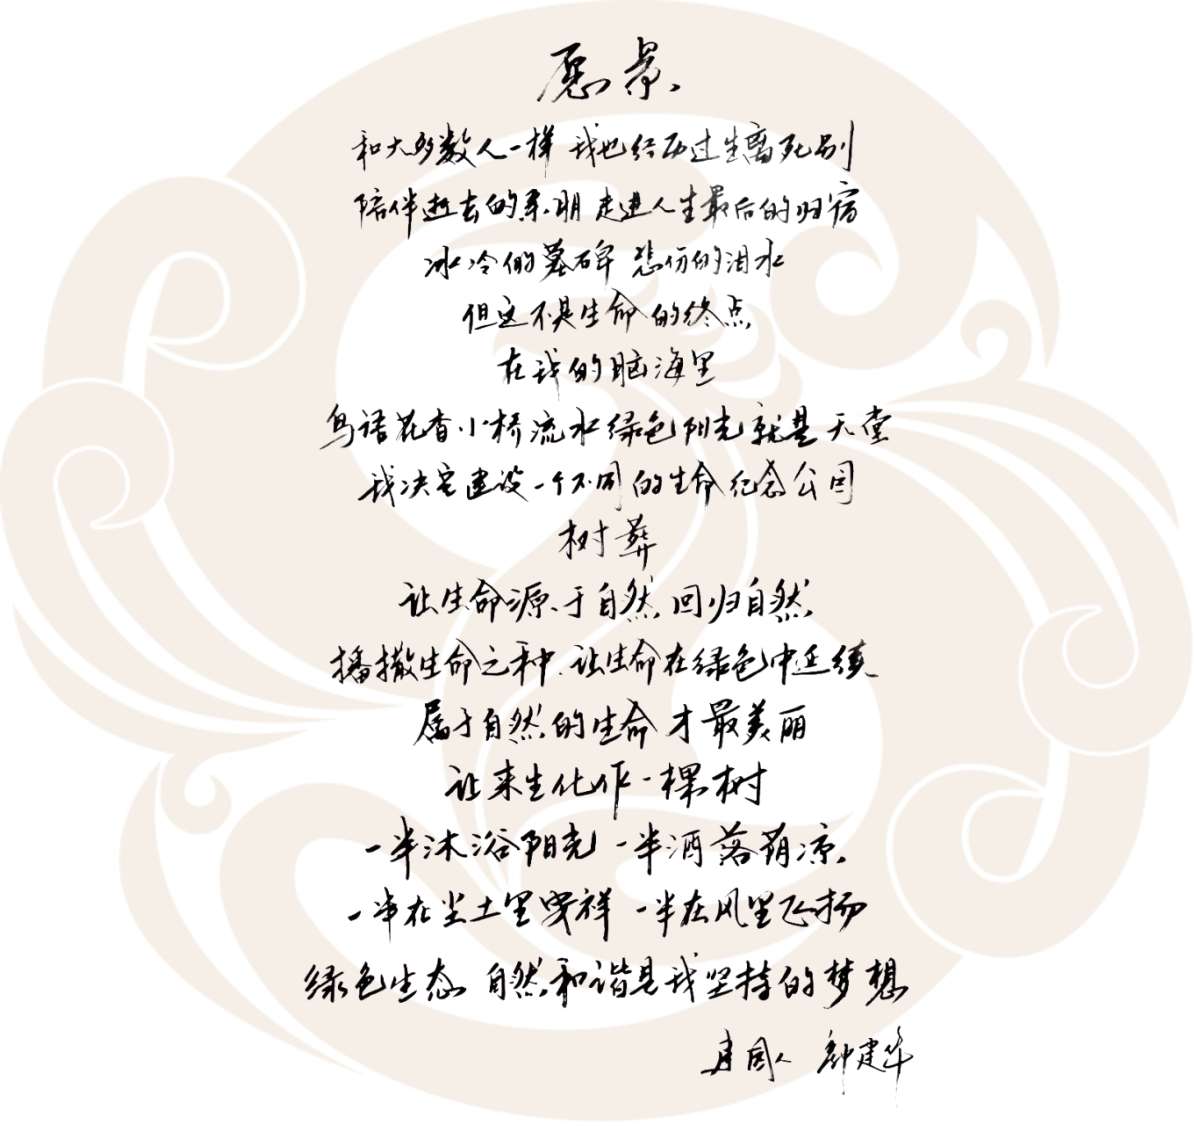 愿景
和大多数人一样 我也经历过生离死别
陪伴逝去的亲朋 走进人生最后的归宿
冰冷的墓碑 悲伤的泪水
但这不是生命的终点
在我的脑海里
鸟语花香小桥流水绿色阳光就是天堂
我决定建设一个不同的生命纪念公园
树葬
让生命源于自然 回归自然
播撒生命之种 让生命在绿色中延续
属于自然的生命 才最美丽
让来生化作一棵树
一半沐浴阳光 一半洒落荫凉
一半在尘土里安祥 一半在风里飞扬
绿色生态 自然和谐是我坚持的梦想
建华